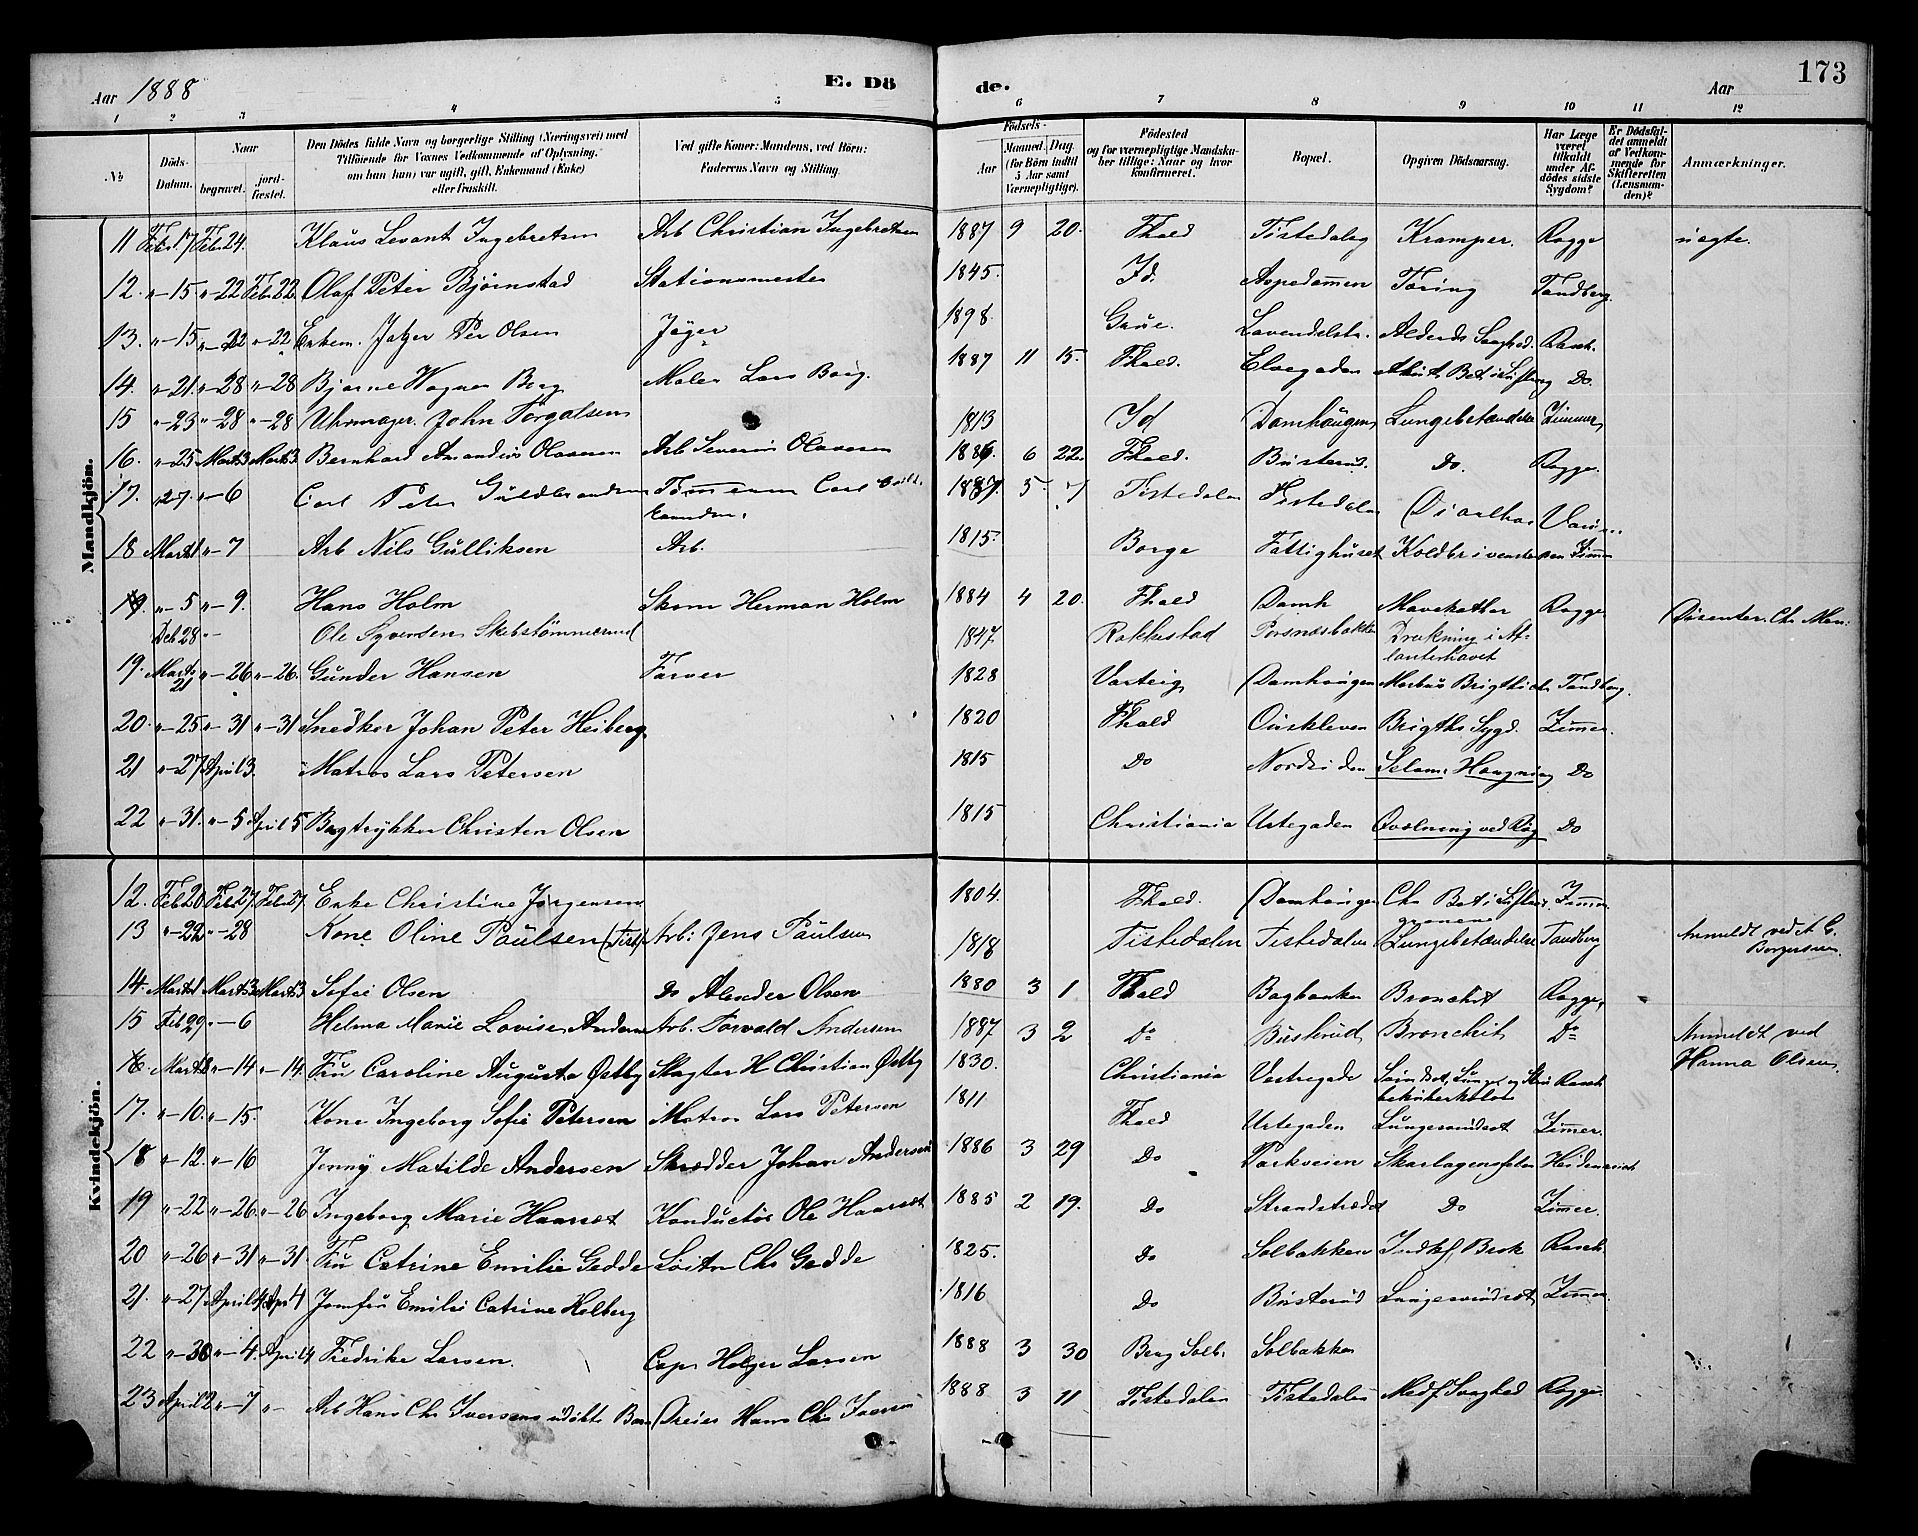 Aar 1888 E. Dö de. Aar 173
1 2 3 4 5 6 7 8 9 10 11 12
No
Döds-Datum.
Naar begravet. jordfæstet.
Den Dödes fulde Navn og borgerlige Stilling (Næringsvei) med Tilföiende for Voxnes Vedkommende af Oplysning om han (hun) var ugift, gift, Enkemand (Enke) eller fraskilt.
Ved gifte Koner: Mandens, ved Börn: Faderens Navn og Stilling.
Födsels- Aar Maaned. Dag. (for Börn indtil 5 Aar samt Værnepligtige).
Födested og for værnepligtige Mandskaber tillige: Naar og hvor konfirmeret.
Bopæl.
Opgiven Dödsaarsag.
Har Læge været tilkaldt under Afdödes sidste Sygdom?
Er Dödsfaldet anmeldt af Vedkommende for Skifteretten (Lensmanden)?
Anmærkninger.
Mandkjön.
11 Feb 17 Feb 24. Klaus Levant Ingebretsen Arb Christian Ingebretsen 1887 9 20. Fhald Tistedalen Kramper. Rogge uægte.
12. " 15 " 22 Feb 22 Olaf Peter Bjørnstad Stationsmester 1845. Id. Aspedammen Tæring Tandberg.
13. " 15 " 22 " 22 Enkem. Jæger Per Olsen Jæger 1898. Grue. Lavendelstr. Alderds Svaghed. Rasch.
14. " 21 " 28 " 28 Bjarne Wagner Borg Maler Lars Borg. 1887 11 15. Fhald. Elvegaden Akut. Bet. i Luftrørg Do.
15 " 23 " 28 " 28 Uhrmager. John Torgalsen 1813 Id Damhaugen Lungebetændelse Zimmer
16. " 25 Marts 3 Marts 3. Bernhard Amandius Olavesen Arb Severin Olavesen 1886. 6 22. Fhald. Busterud. Do. Rogge.
17. 27. " 6 Carl Peter Guldbrandsen Tømmerm Carl Guldbrandsen. 1887. 5. 7 Tistedalen Tistedalen Diarrhoe
18 Marts 1 " 7 Arb Nils Gulliksen Arb. 1815. Borge Fattighuset Koldbr i venstre Zimm
19. " 5 " 9. Hans Holm Skom Herman Holm 1884 4 20. Fhald Damh Mavekathar Rogge.
Deb 28 " Ole Syversen Skibstømmermd 1847 Rakkestad Porsnæsbakken Drukning i Atlanterhavet
19. Marts 21 " 26 " 26. Gunder Hansen Farver 1828 Varteig Damhaugen Morbus Brigthii Tandberg.
20. " 25 " 31 " 31 Snedker Johan Peter Heiberg 1820 Fhald Ouskleven Brigths Sygd. Zimer.
21 " 27 April 3. Matros Lars Petersen 1815 Do Nordsiden Selvm. Hængning Do
22 " 31. " 5 April 5 Bogtrykker Christen Olsen 1815 Christiania Urtegaden Qvælning ved Røg Do
Kvindekjön.
12. Feb 20 Feb 27 Feb 27. Enke Christine Jørgensen 1804. Fhald. Damhaugen Chr Bet i Luftrør grenene Zimm.
13 " 22 " 28 Kone Oline Paulsen (Tist) Arb: Jens Paulsen 1818 Tistedalen Tistedalen Lungebetændelse Tandberg Anmeldt ved A C. Borgersen.
14. Marts 1 Marts 3 Marts 3 Sofie Olsen Do Alexder Olsen 1880 3 1 Fhald Bagbanken Bronchit Rogge.
15 Feb 29 " 6 Helma Marie Lovise Andersen Arb. Torvald Andersen 1887 3 2 Do Busterud Bronchit Do Anmeldt ved Hanna Olsen.
16. Marts 8 " 14 " 14. Fru Caroline Augusta Østby Slagter H Christian Østby 1830. Christiania Vestregade Rasch
17. " 10. " 15. Kone Ingeborg Sofie Petersen Matros Lars Petersen 1811 Fhald Urtegaden Lungesvindsot Zimer.
18 " 12. " 16 Jenny Matilde Andersen Skrædder Johan Andersen 1886 3 29 Do Parkveien Skarlagensfeber Heidenreich
19 " 22 " 26. " 26 Ingeborg Marie Haaræt Konductør Ole Haaræt 1885 2 19. Do Strandstrædet Do Zimer.
20 " 26 " 31 " 31. Fru Catrine Emilie Gedde Løitn Chr Gedde 1825. Do Solbakken Indkl Brok Rasch.
21. " 27 April 4 Apr 4 Jomfru Emilie Catrine Holberg 1816 Do Busterud Lungesvindsot Zimm.
22 " 30 " 4. April 4 Fredrike Larsen. Cap Holger Larsen 1888 3 30 Berg Solb. Solbakken
23 April 2 " 7 " Arb Hans Chr Iversens udøbte Barn Dreier Hans Chr Iversen 1888 3 11 Tistedalen Tistedalen Medf Svaghed Rogge.